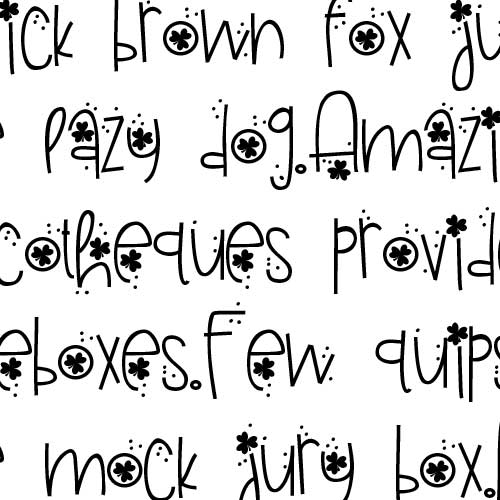 ick brown fox ju
lazy dog.Amazi
cotheques provide
eboxes.Few quips
mock jury box.